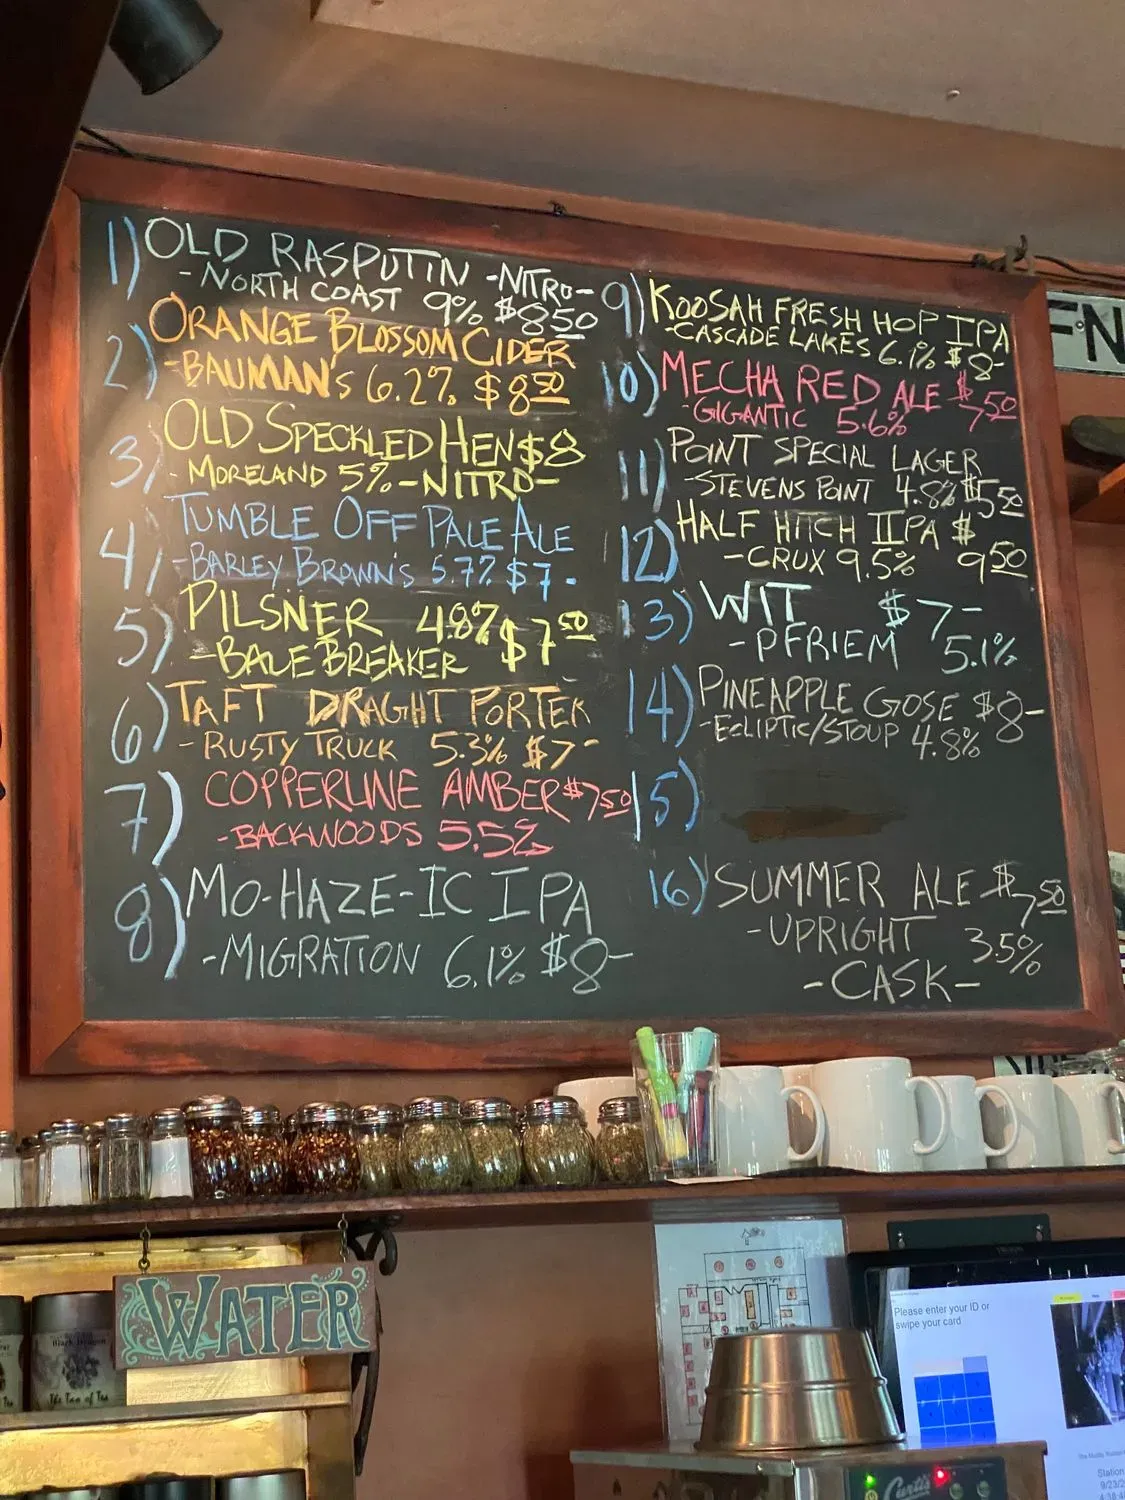 1) OLD RASPUTIN -NITRO-
- NORTH COAST 9% $8.50
2) ORANGE BLOSSOM CIDER
-BAUMAN'S 6.2% $8.50
3) OLD SPECKLED HEN $8
- MORELAND 5% -NITRO-
4) TUMBLE OFF PALE ALE
-BARLEY BROWN'S 5.7% $7-
5) PILSNER 4.8% $7.50
-BALE BREAKER
6) TAFT DRAGHT PORTER
- RUSTY TRUCK 5.3% $7-
7) COPPERLINE AMBER $7.50
-BACKWOODS 5.5%
8) MO-HAZE-IC IPA
-MIGRATION 6.1% $8-
9) KOOSAH FRESH HOP IPA
-CASCADE LAKES 6.1% $8-
10) MECHA RED ALE $7.50
-GIGANTIC 5.6%
11) POINT SPECIAL LAGER
-STEVENS POINT 4.8% $5.50
12) HALF HITCH IIPA $9.50
-CRUX 9.5%
13) WIT $7-
-PFRIEM 5.1%
14) PINEAPPLE GOSE $8-
-ECLIPTIC/STOUP 4.8%
15)
16) SUMMER ALE $7.50
-UPRIGHT 3.5%
-CASK-
F·N
WATER
Black Dragon
The Tao of Tea
Please enter your ID or
swipe your card
Station
9/23/2
Curtis